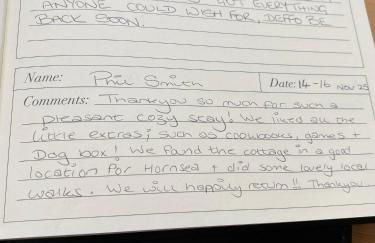 ANYONE COULD WISH FOR, DEFFO BE
BACK SOON.
Name: Phil Smith
Date: 14-16 Nov 25
Comments: Thankyou so much for such a
pleasant cozy stay! We liked all the
little extras; such as cookbooks, games +
Dog box! We found the cottage in a good
location for Hornsea + did some lovely local
walks. We will happily return!! Thankyou